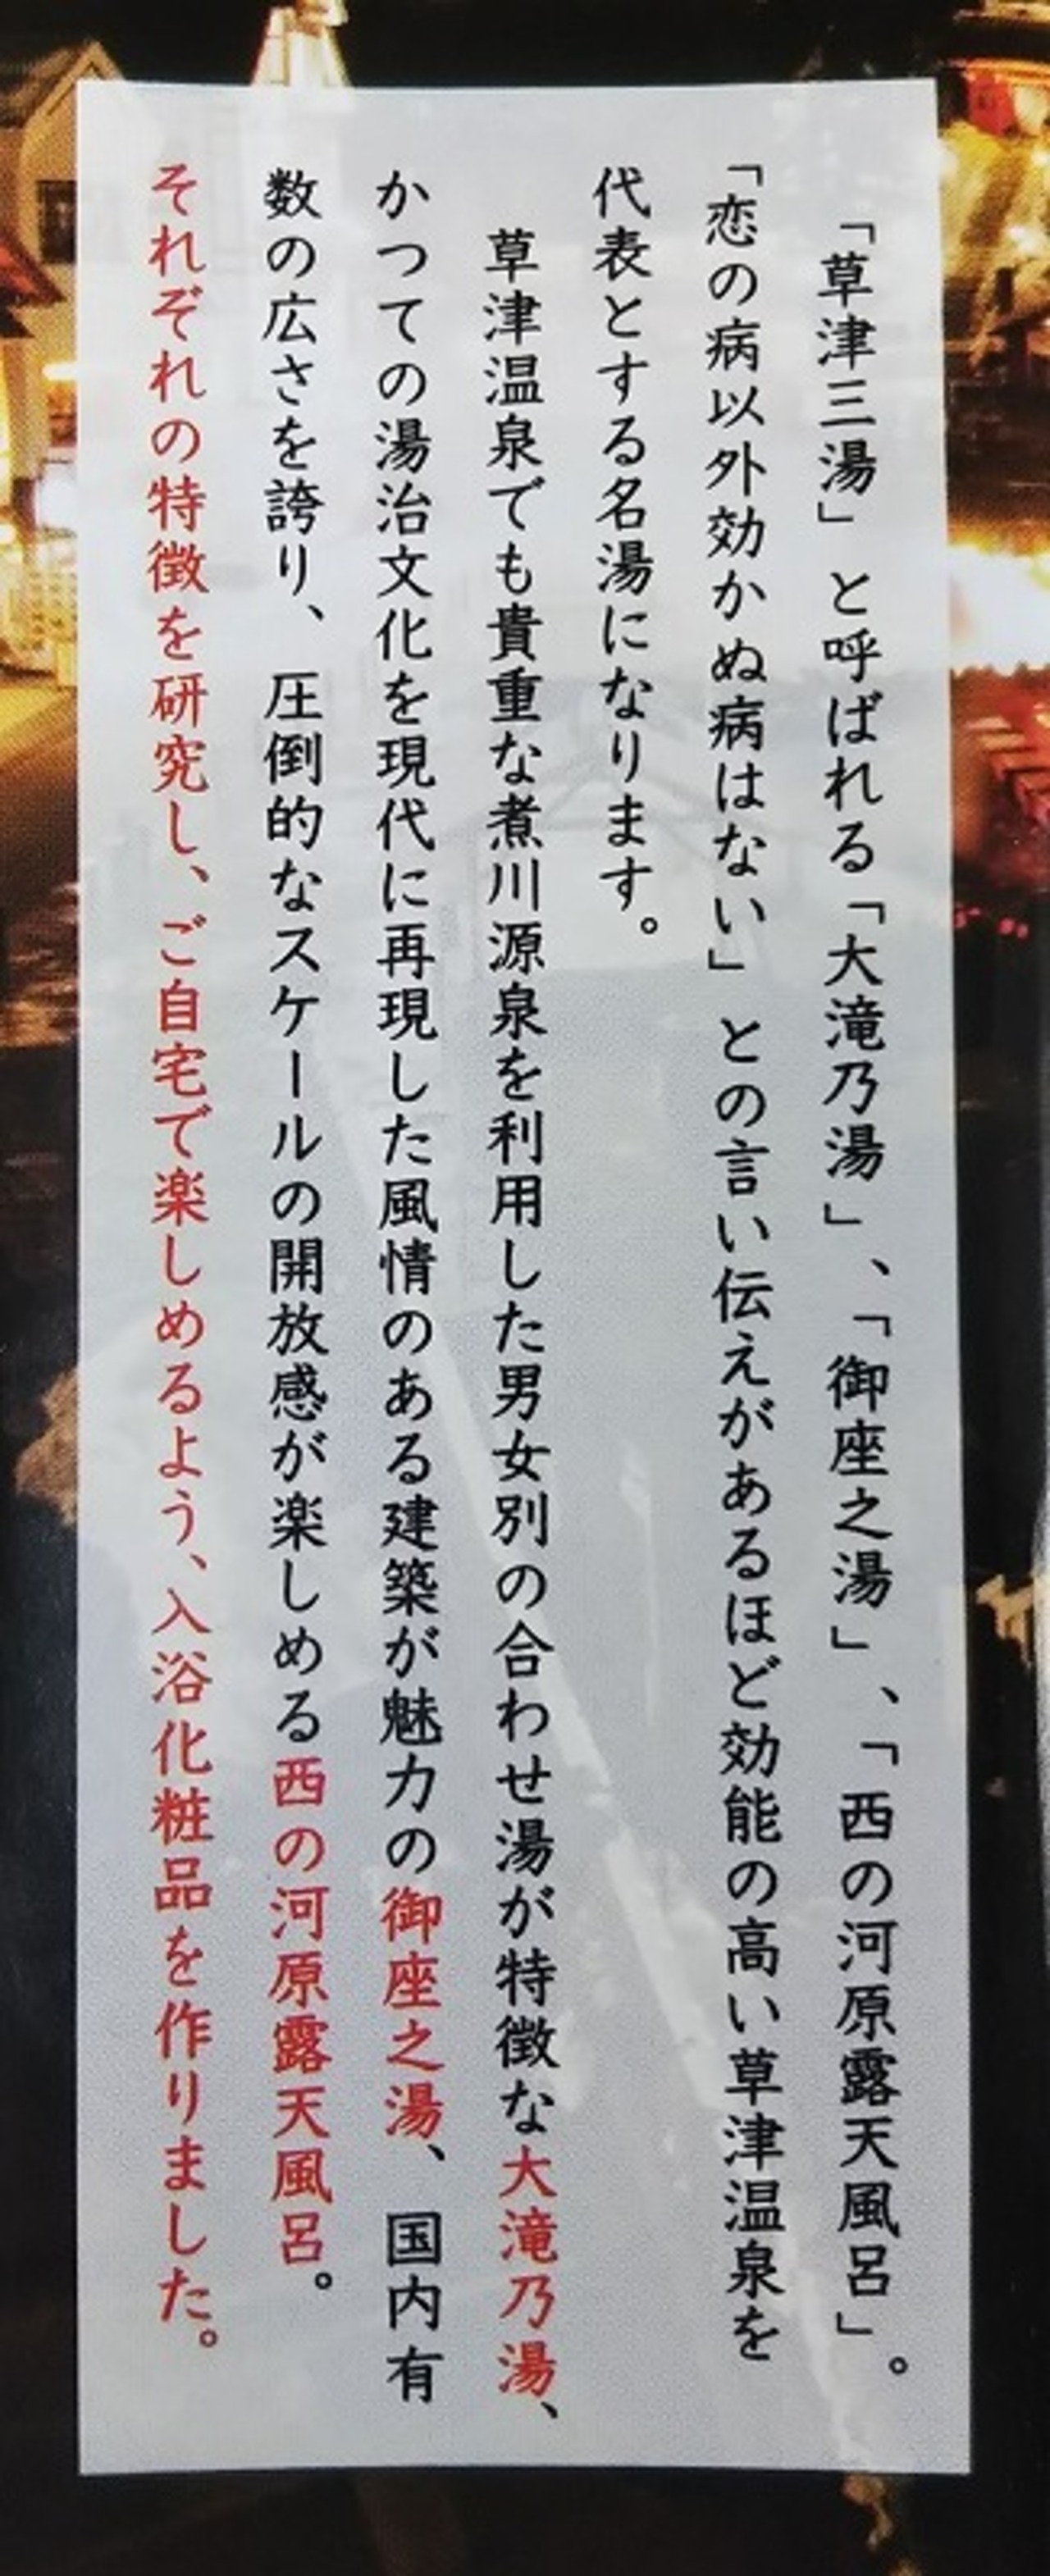 「草津三湯」と呼ばれる「大滝乃湯」、「御座之湯」、「西の河原露天風呂」。
「恋の病以外効かぬ病はない」との言い伝えがあるほど効能の高い草津温泉を
代表とする名湯になります。
草津温泉でも貴重な煮川源泉を利用した男女別の合わせ湯が特徴な大滝乃湯、
かつての湯治文化を現代に再現した風情のある建築が魅力の御座之湯、国内有
数の広さを誇り、圧倒的なスケールの開放感が楽しめる西の河原露天風呂。
それぞれの特徴を研究し、ご自宅で楽しめるよう、入浴化粧品を作りました。